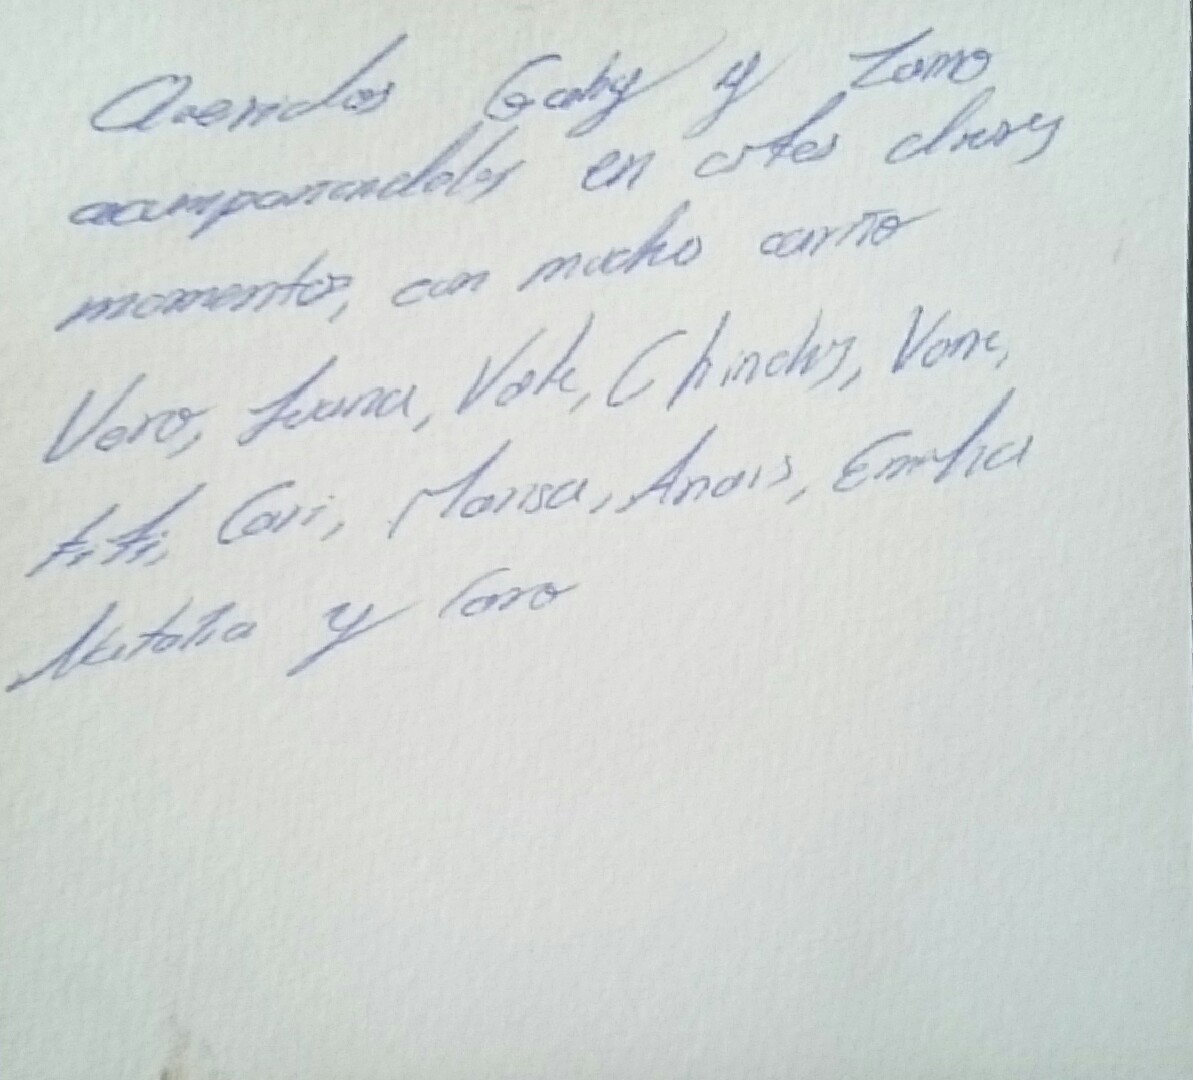 Queridos Gaby y Zomo
acompañandolos en estos duros
momentos, con mucho cariño
Vero, Juana, Vale, Chinchis, Vane,
Titi, Cari, Marisa, Anais, Emilia
Natalia y Caro